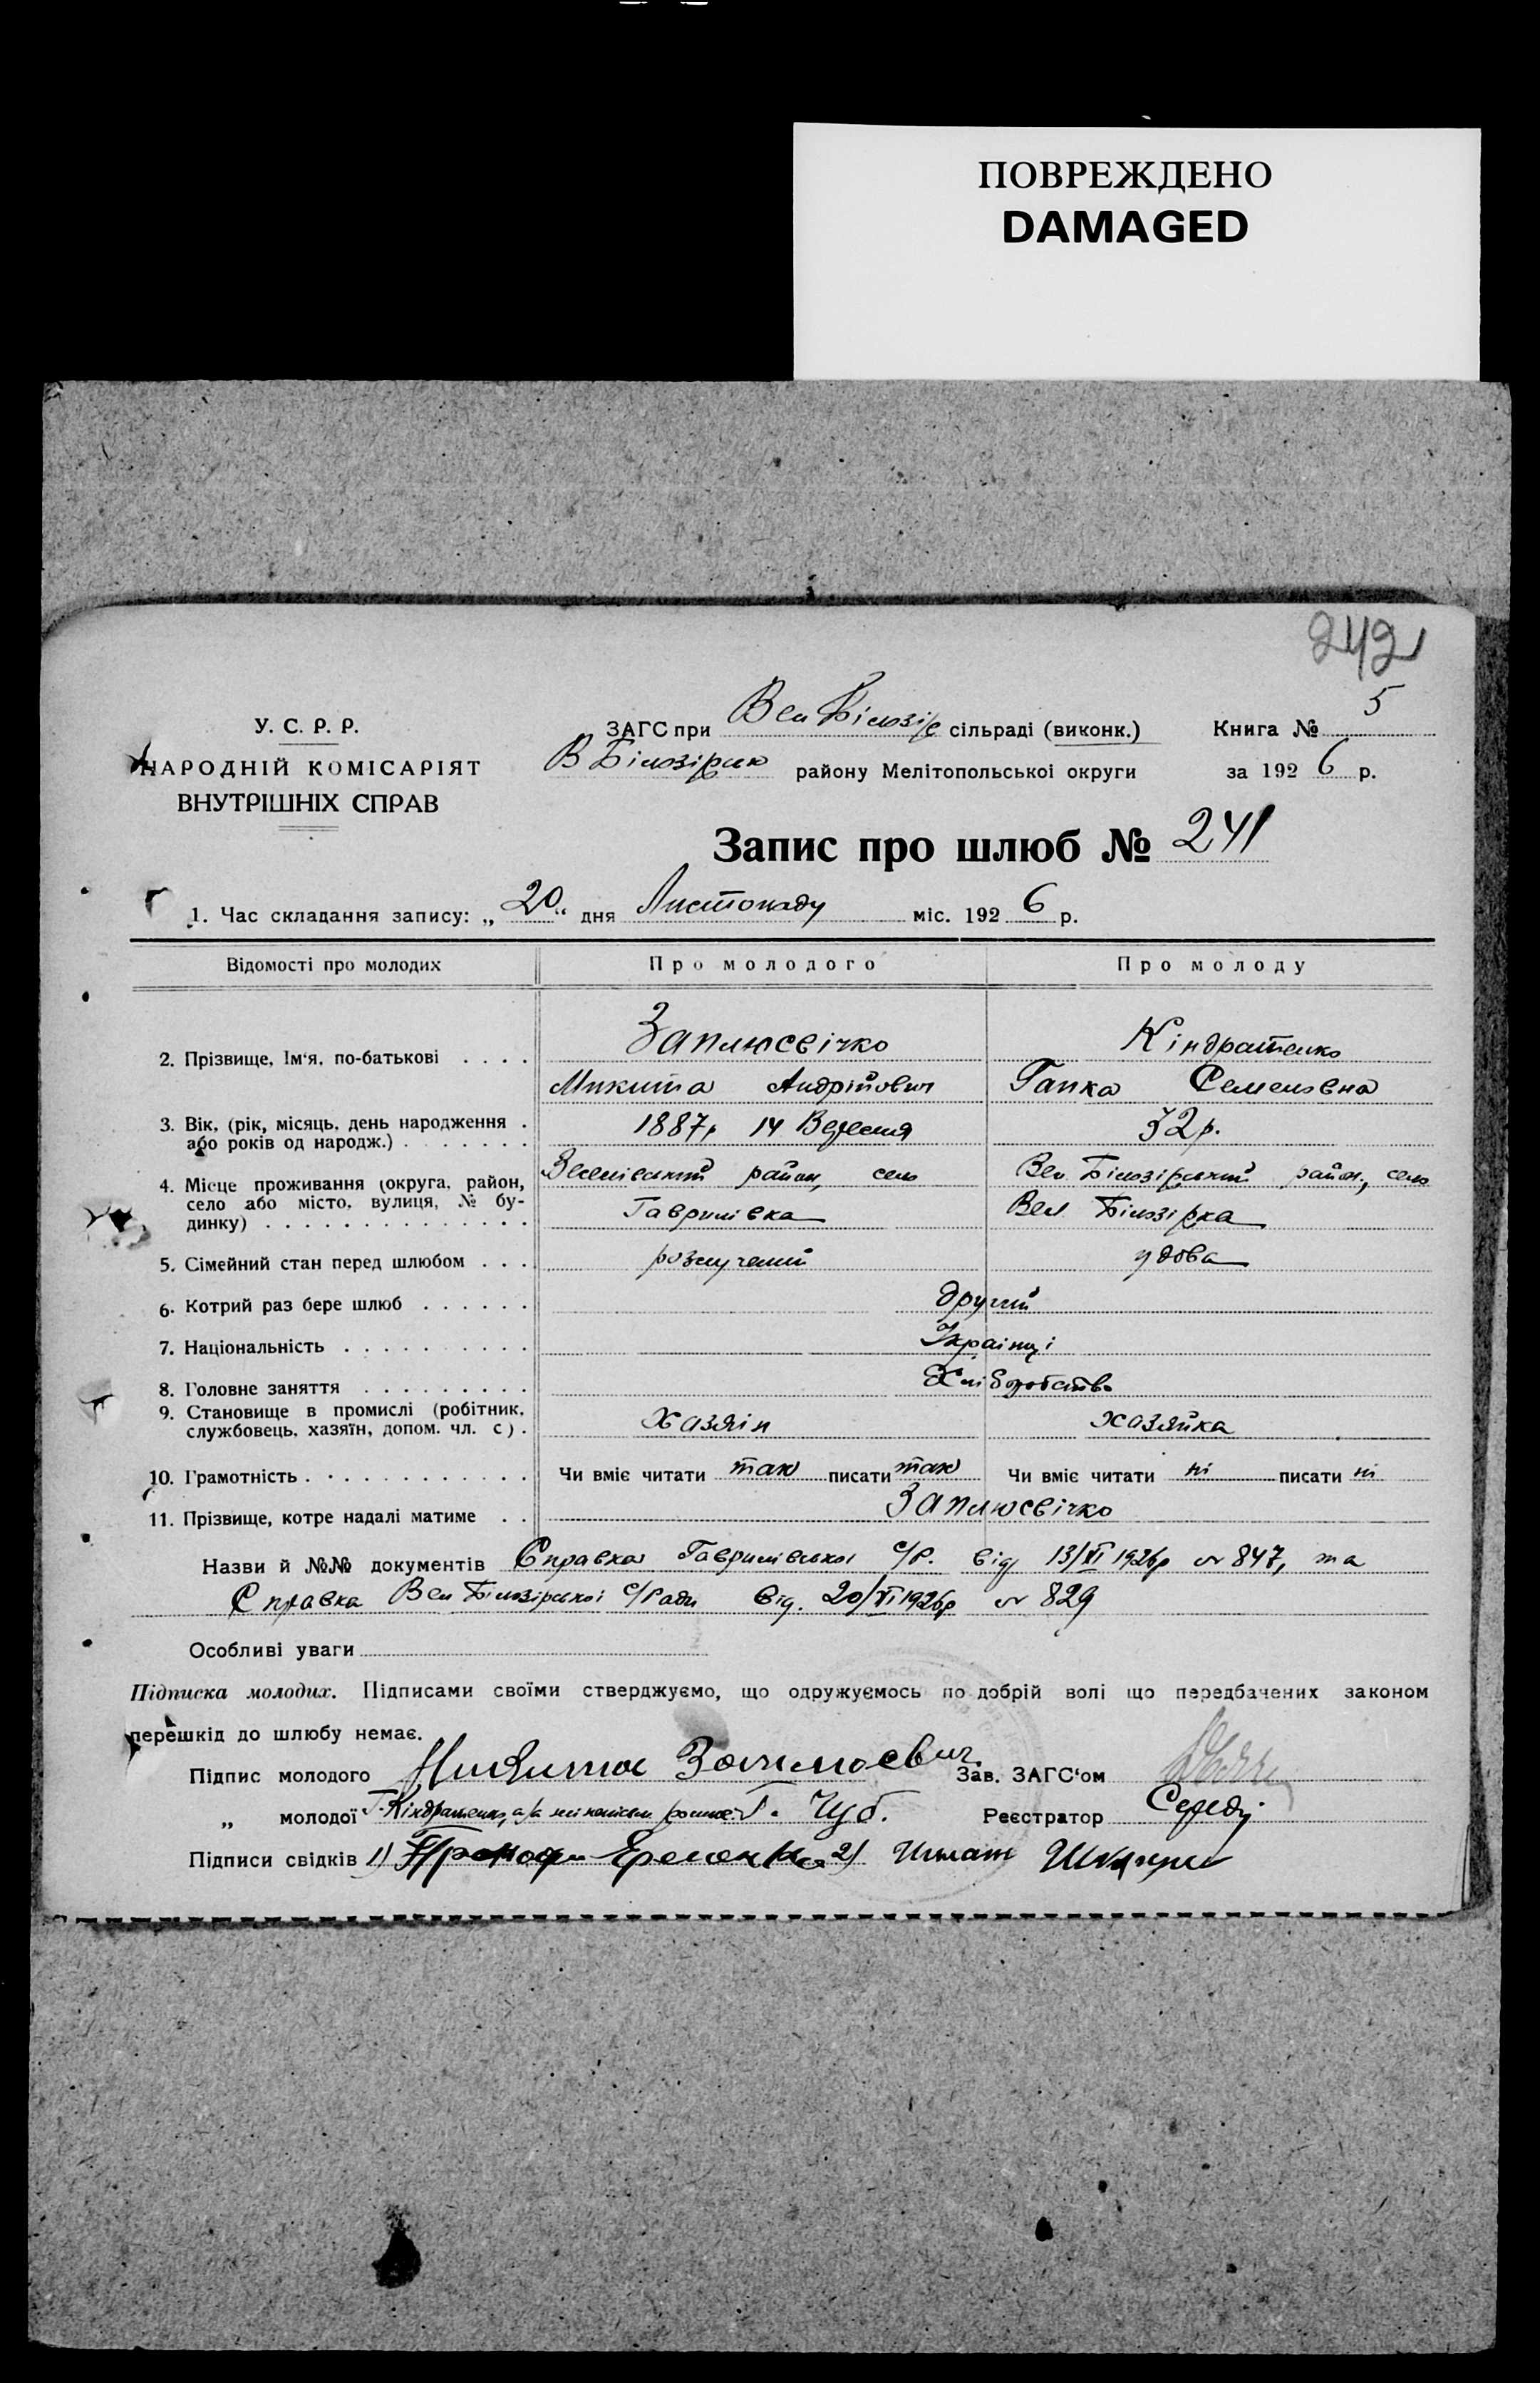 ПОВРЕЖДЕНО
DAMAGED
242
У. С. Р. Р.
НАРОДНІЙ КОМІСАРІЯТ
ВНУТРІШНІХ СПРАВ
ЗАГС при Вел Білозір сільраді (виконк.) Книга № 5
В Білозірськ району Мелітопольської округи за 1926 р.
Запис про шлюб № 241
1. Час складання запису: „20“ дня Листопаду міс. 1926 р.
Відомості про молодих Про молодого Про молоду
2. Прізвище, Ім'я, по-батькові . . . . Заплюсвічко Кіндратенко
Микита Андрійович Гапка Семеновна
3. Вік, (рік, місяць, день народження . 1887р 14 Вересня 32р.
або років од народж.) . . . . . . .
4. Місце проживання (округа, район, Веселівський район, село Вел. Білозірський район, село
село або місто, вулиця, № бу- Гаврилівка Вел Білозірка
динку) . . . . . . . . . . . . . .
5. Сімейний стан перед шлюбом . . . розлучений удова
6. Котрий раз бере шлюб . . . . . . другий
7. Національність . . . . . . . . . . Українці
8. Головне заняття . . . . . . . . . Хліборобство
9. Становище в промислі (робітник, хазяїн хазяйка
службовець, хазяїн, допом. чл. с) .
10. Грамотність . . . . . . . . . . . . Чи вміє читати так писати так Чи вміє читати ні писати ні
11. Прізвище, котре надалі матиме . . Заплюсвічко
Назви й №№ документів Справка Гаврилівської с/р. від 13/XI 1926р № 847, та
Справка Вел Білозірської с/Ради від. 20/XI 1926р № 829
Особливі уваги
Підписка молодих. Підписами своїми стверджуємо, що одружуємось по добрій волі що передбачених законом
перешкід до шлюбу немає.
Підпис молодого Микита Зав. ЗАГС'ом
„ молодої Г. Кіндратенко, а/за неї Чуб. Реєстратор Середу
Підписи свідків 1) 2)